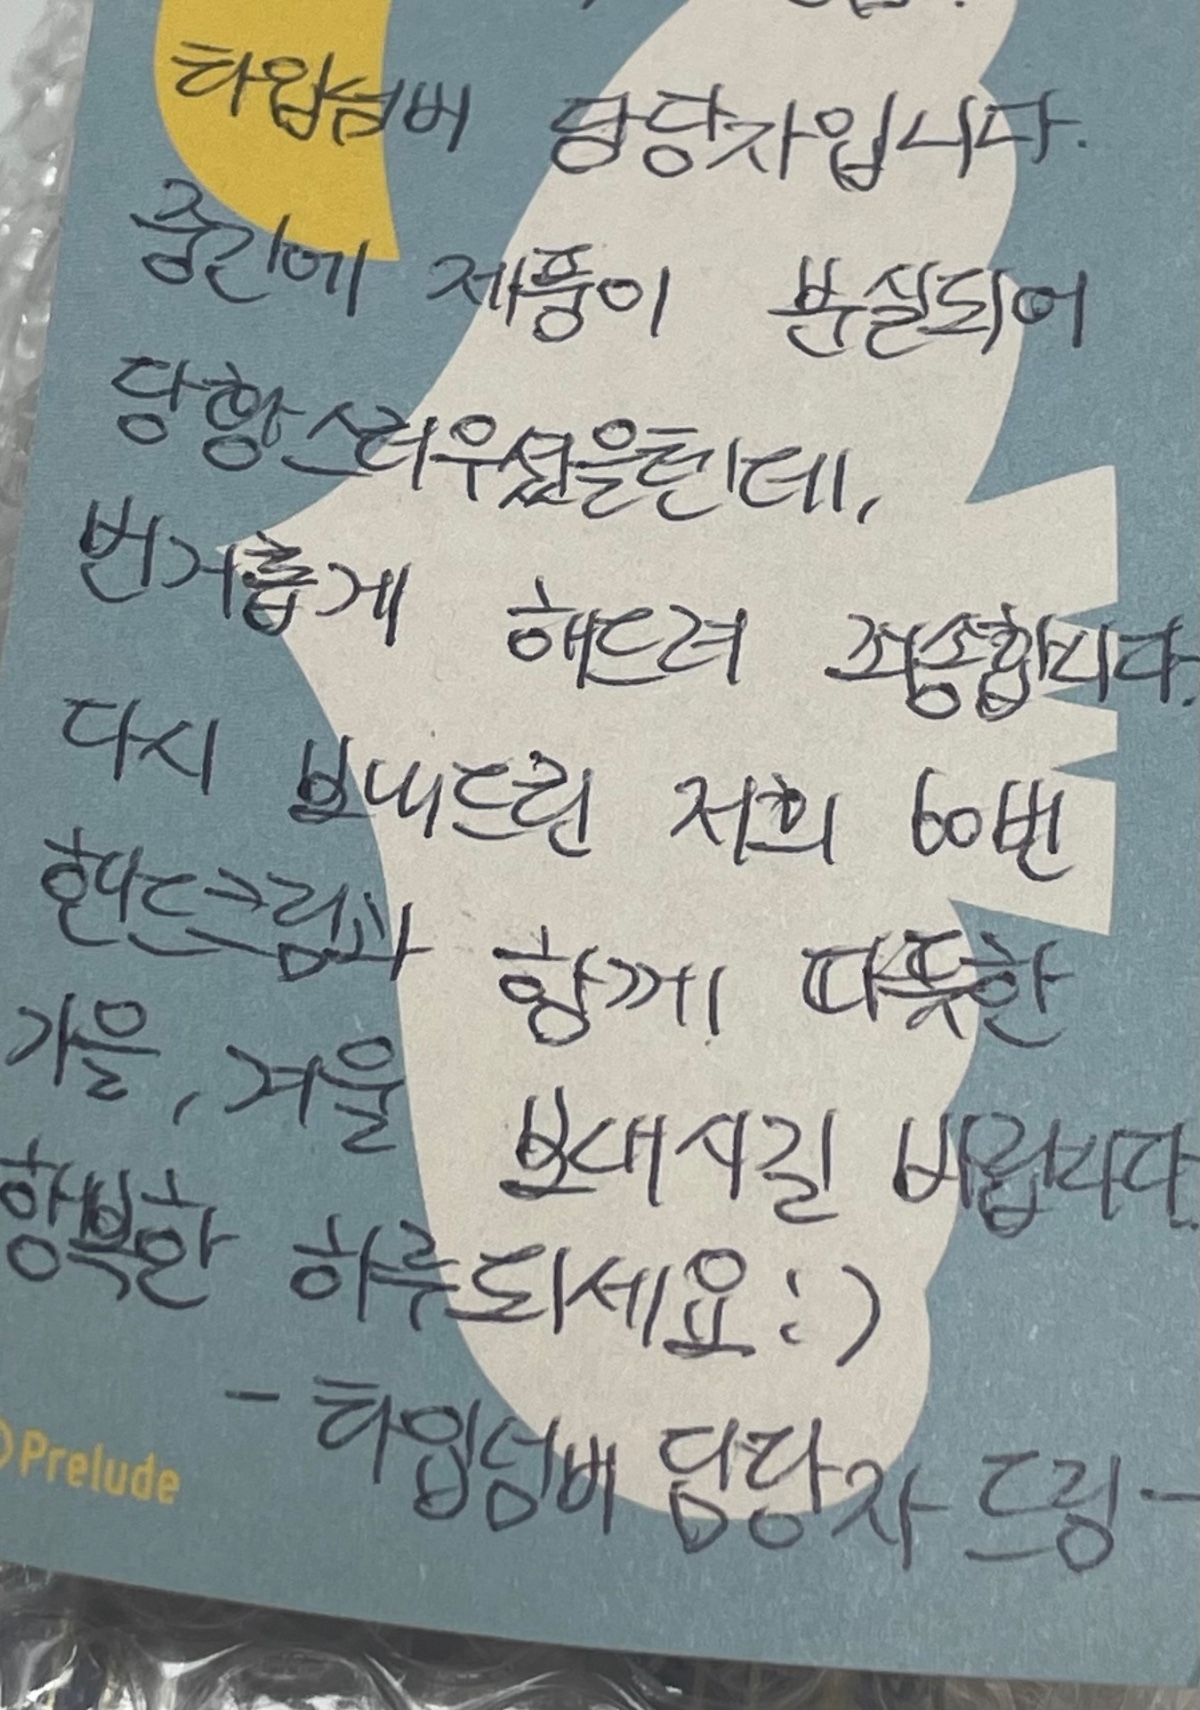 타임넘버 담당자입니다.
중간에 제품이 분실되어
당황스러우셨을텐데,
번거롭게 해드려 죄송합니다.
다시 보내드린 저희 60번
핸드크림과 함께 따뜻한
가을, 겨울 보내시길 바랍니다
행복한 하루되세요:)
- 타임넘버 담당자 드림 -
Prelude